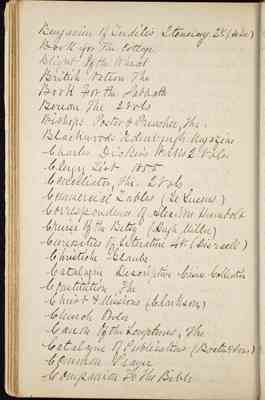 Benjamin of Tudela's Itinerary 2V (Asher)
Book for the Cottage
Blight of the Wheat
British Nation The
Book For the Sabbath
Beacon The 2 Vols
Bishops Poster & Preacher, The
Blackwoods Edinburgh Magazine
Charles Dickens Works 2 Vols
Clergy List 1855
Conciliator, The. 2 Vols
Commercial Tables
Correspondence of Humbolt
Cruise of the Betsy (Hugh Miller)
Curiosities of Literature 4V (Disraeli)
Christiche Glaube
Catalogue Descriptive
Constitution The
Christ & Missions (Clarkson)
Church Poles
Canon of the Scriptures, The
Catalogue of Publications
Common Prayer
Companion To the Bible